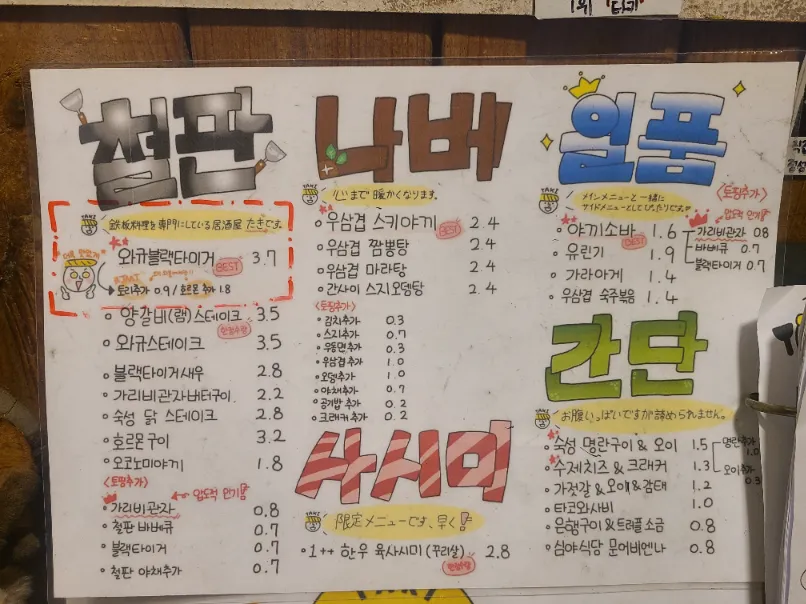 1위 "타키"
철판
TAKI
鉄板料理を専門にしている居酒屋 たきです。
와규블랙타이거 3.7
BEST
토리추가 0.9 / 호르몬 추가 1.8
양갈비(램)스테이크 3.5
한정수량
와규스테이크 3.5
블랙타이거새우 2.8
가리비관자버터구이 2.2
숙성 닭 스테이크 2.8
호르몬구이 3.2
오코노미야키 1.8
<토핑추가>
압도적 인기!!
가리비관자 0.8
철판 바베큐 0.7
블랙타이거 0.7
철판 야채추가 0.7
나베
TAKI
心まで 暖かくなります。
우삼겹 스키야끼 2.4
BEST
우삼겹 짬뽕탕 2.4
우삼겹 마라탕 2.4
간사이 스지오뎅탕 2.4
<토핑추가>
김치추가 0.3
스지추가 0.7
우동면추가 0.3
우삼겹추가 1.0
오뎅추가 1.0
야채추가 0.7
공기밥 추가 0.2
크래커 추가 0.2
사시미
限定メニューです、早く!
1++ 한우 육사시미 (꾸리살) 2.8
한정수량
일품
TAKI
メインメニューと 一緒に
サイドメニューとしてぴったりです。
<토핑추가>
압도적 인기!!
야끼소바 1.6
BEST
유린기 1.9
가라아게 1.4
우삼겹 숙주볶음 1.4
가리비관자 0.8
바베큐 0.7
블랙타이거 0.7
간단
お腹いっぱいですが諦められません。
숙성 명란구이 & 오이 1.5
명란추가 1.0
수제치즈 & 크래커 1.3
오이추가 0.3
가젓갈 & 오이 & 감태 1.2
타코와사비 1.0
은행구이 & 트러플 소금 0.8
심야식당 문어비엔나 0.8